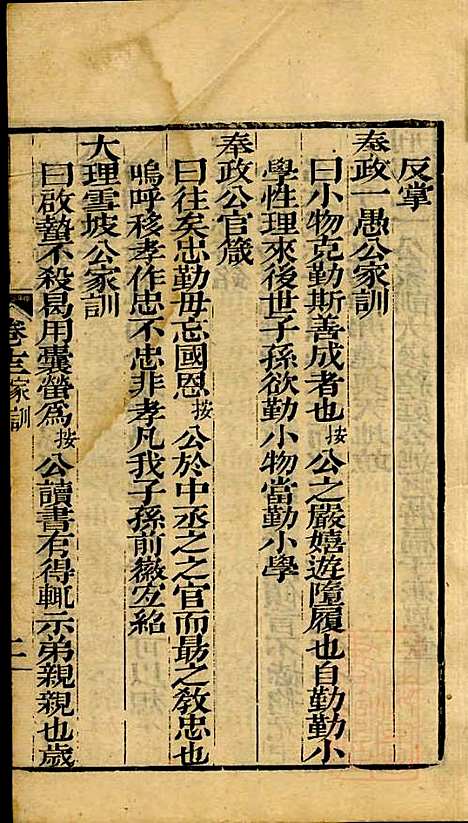 反掌
奉政一愚公家訓
曰小物克勤斯善成者也按公之嚴嬉遊隨履也自勤勤小
學性理來後世子孫欲勤小物當勤小學
奉政公官箴
曰往矣忠勤毋忘國恩按公於中丞之之官而最之敎忠也
嗚呼移孝作忠不忠非孝凡我子孫前徽宜紹
大理雪坡公家訓
曰啟蟄不殺曷用囊螢為按公讀書有得輒示弟親親也歲
家訓